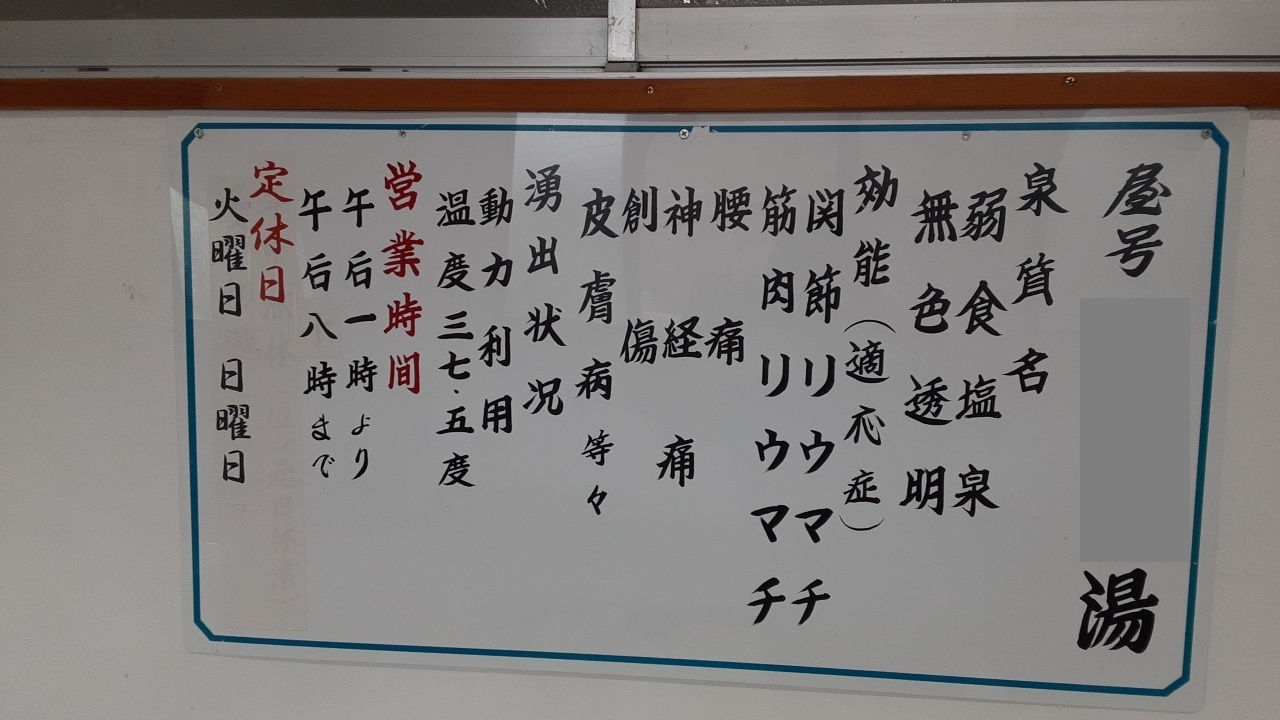 屋号
湯
泉質名
弱食塩泉
無色透明
効能(適応症)
関節リウマチ
筋肉リウマチ
腰痛
神経痛
創傷
皮膚病等々
湧出状況
動力利用
温度三七.五度
営業時間
午后一時より
午后八時まで
定休日
火曜日 日曜日